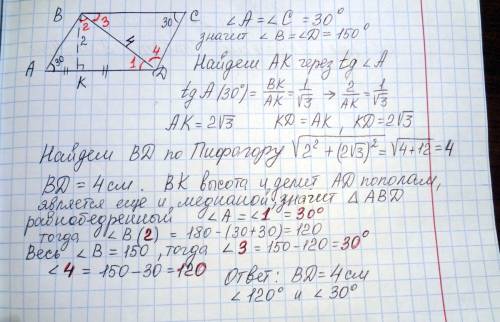 B 3 C
2 30°
2 4 4
A 30° 1 D
K
∠A = ∠C = 30°
значит ∠B = ∠D = 150°
Найдем AK через tg ∠A
tg A (30°) = BK/AK = 1/√3 → 2/AK = 1/√3
AK = 2√3 KD = AK, KD = 2√3
Найдем BD по Пифагору √(2² + (2√3)²) = √(4+12) = 4
BD = 4 см. BK высота и делит AD пополам,
является еще и медианой, значит △ ABD
равнобедренный ∠A = ∠1 = 30°
тогда ∠B (2) = 180 - (30+30) = 120
Весь ∠B = 150, тогда ∠3 = 150-120 = 30°
∠4 = 150 - 30 = 120
Ответ: BD = 4 см
∠120° и ∠30°